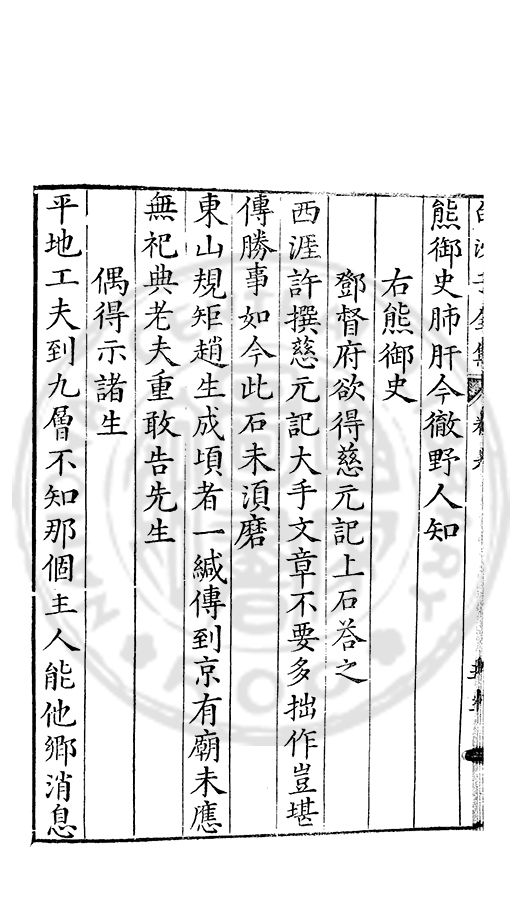 熊御史肺肝今徹野人知
右熊御史
鄧督府欲得慈元記上石荅之
西涯許撰慈元記大手文章不要多拙作豈堪
傳勝事如今此石未湏磨
東山規矩趙生成頃者一緘傳到京有廟未應
無祀典老夫重敢告先生
偶得示諸生
平地工夫到九層不知那個主人能他鄉消息